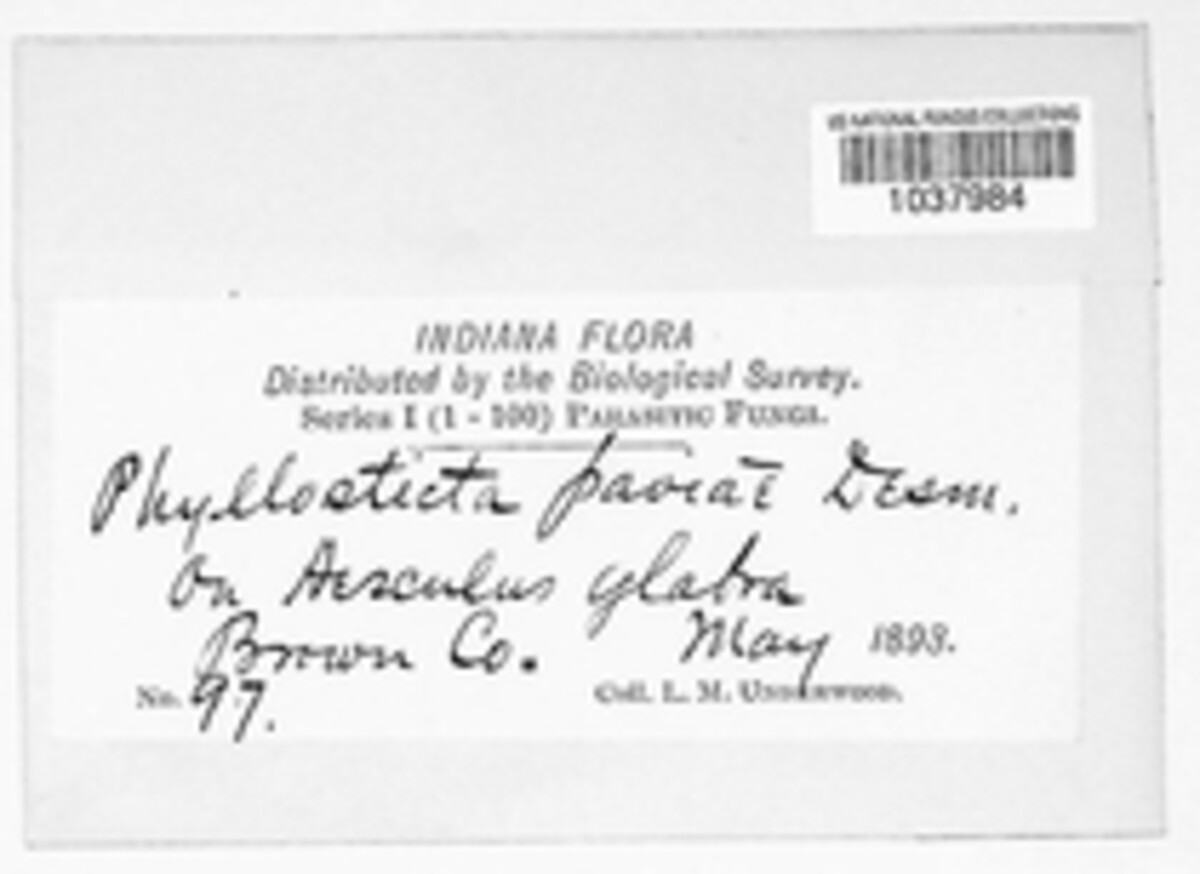 US NATIONAL FUNGUS COLLECTIONS
1037984
INDIANA FLORA
Distributed by the Biological Survey.
Series I (1 - 100) PARASITIC FUNGI.
Phyllosticta paviae Desm.
On Aesculus glabra
Brown Co. May 1893.
No. 97. Coll. L. M. UNDERWOOD.